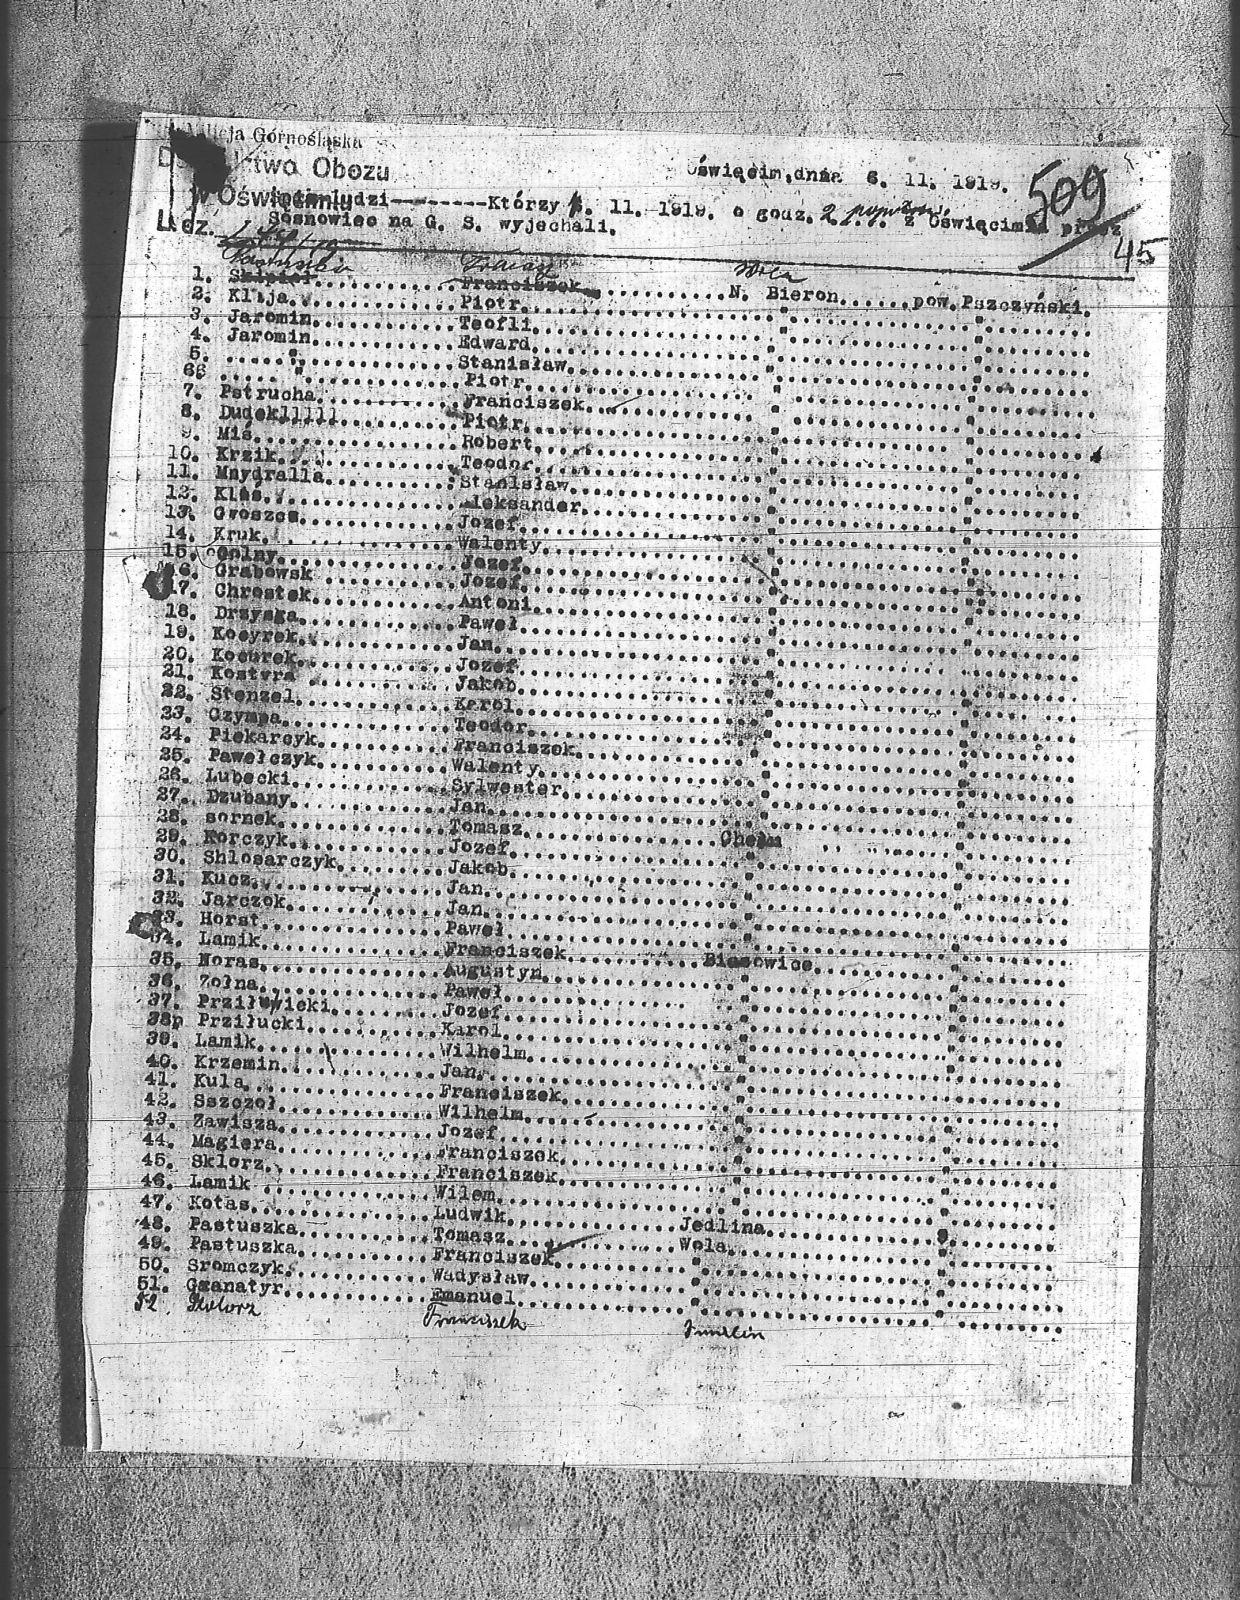 Milicja Górnośląska
Dowództwo Obozu
w Oświęcimiu
L. dz.
Oświęcim, dnia 6. 11. 1919.
509
ludzi---------Którzy 6. 11. 1919. o godz. 2 z Oświęcimia przez
Sosnowiec na G. S. wyjechali.
45
Pastuszka Franciszek Wola
1. Skipiol Franciszek N. Bieron pow. Pszczyński.
2. Klija Piotr " "
3. Jaromin Teofli " "
4. Jaromin Edward " "
5. " Stanisław " "
66 " Piotr " "
7. Pstrucha Franciszek " "
8. Dudeklllll Piotr " "
9. Miś Robert " "
10. Krzik Teodor " "
11. Mnydralla Stanisław " "
12. Klas Aleksander " "
13. Gwoszcs Jozef " "
14. Kruk Walenty " "
15. Golny Jozef " "
16. Grabowsk Jozef " "
17. Chrostek Antoni " "
18. Drzysga Paweł " "
19. Kocyrek Jan " "
20. Kocurek Jozef " "
21. Kostyra Jakob " "
22. Stenzel Karol " "
23. Czympa Teodor " "
24. Piekarcyk Franciszek " "
25. Pawełczyk Walenty " "
26. Lubecki Sylwester " "
27. Dzubany Jan " "
28. sornek Tomasz Chełm " "
29. Korczyk Jozef " "
30. Shlosarczyk Jakob " "
31. Kucz Jan " "
32. Jarczok Jan " "
33. Horst Paweł " "
34. Lamik Franciszek Biasowice
35. Noras Augustyn " "
36. Zołna Paweł " "
37. Priziłuwicki Jozef " "
38p Prziłucki Karol " "
39. Lamik Wilhelm " "
40. Krzemin Jan " "
41. Kula Franciszek " "
42. Sszczoł Wilhelm " "
43. Zawisza Jozef " "
44. Magiera Franciszek " "
45. Sklorz Franciszek " "
46. Lamik Wilem " "
47. Kotas Ludwik Jedlina "
48. Pastuszka Tomasz Wola "
49. Pastuszka Franciszek " "
50. Sromczyk Wadysław " "
51. Granatyr Emanuel " "
52 Franciszek